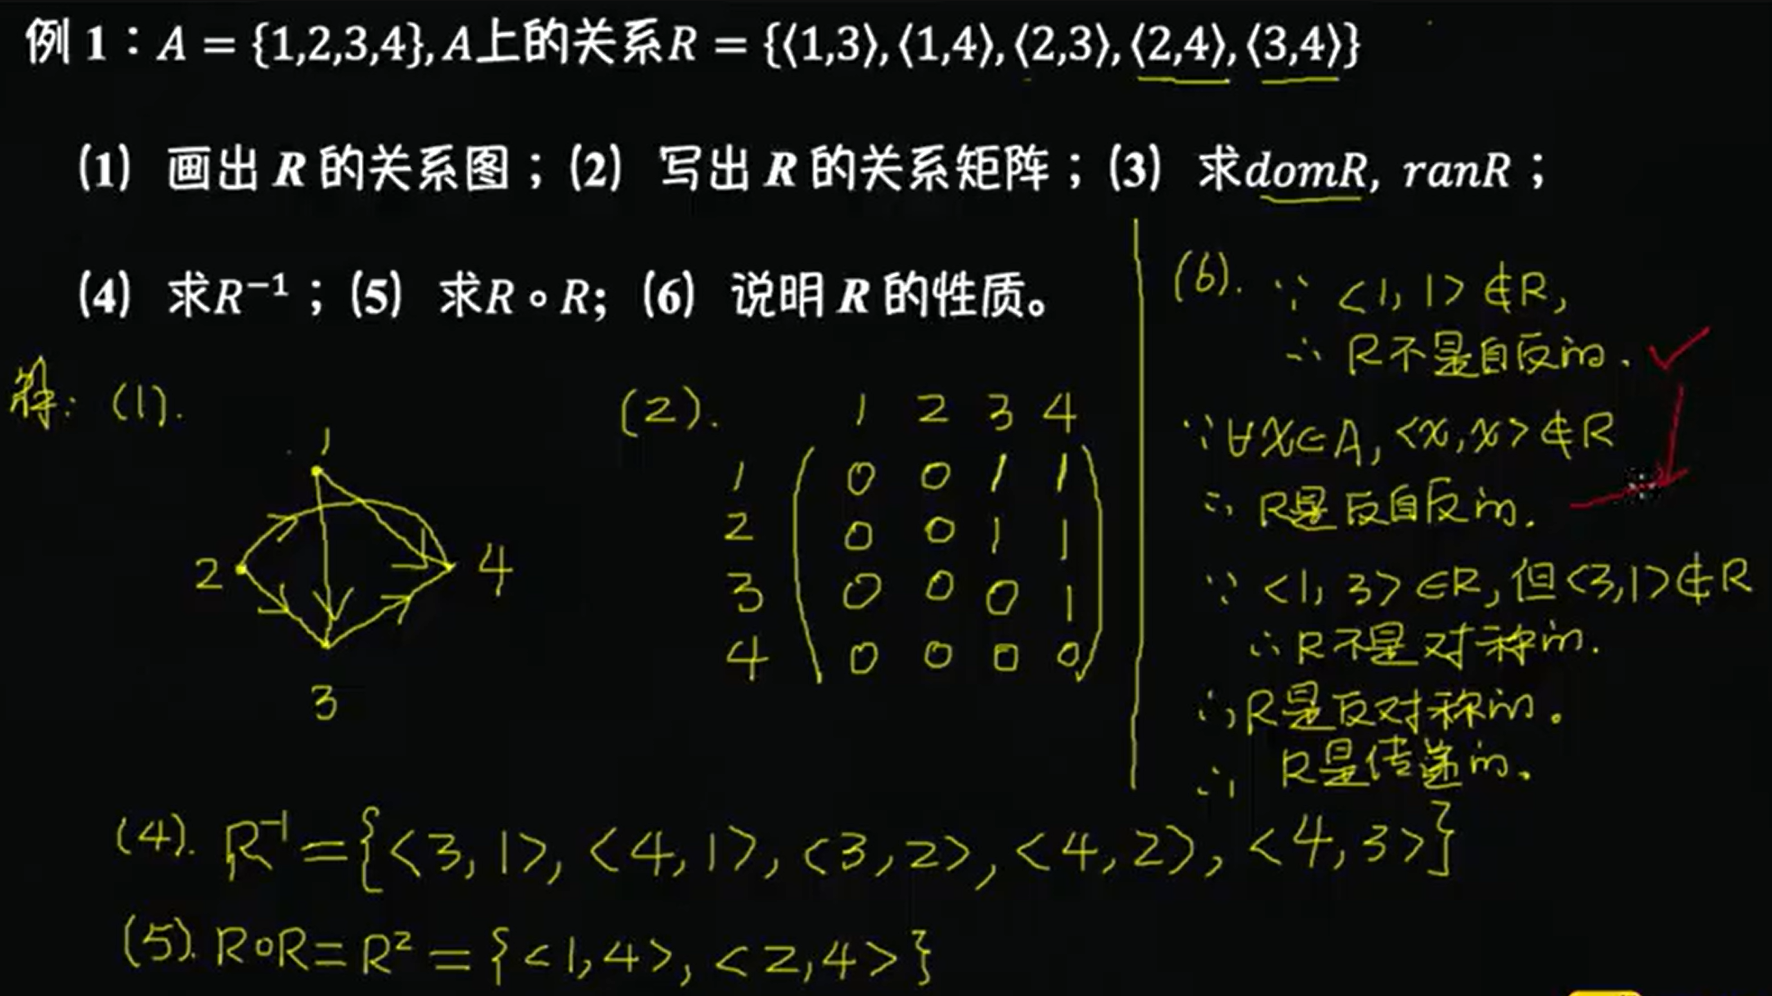 例1：A = {1,2,3,4}, A上的关系R = {⟨1,3⟩, ⟨1,4⟩, ⟨2,3⟩, ⟨2,4⟩, ⟨3,4⟩}
(1) 画出 R 的关系图；(2) 写出 R 的关系矩阵；(3) 求domR, ranR；
(4) 求R⁻¹；(5) 求R∘R; (6) 说明 R 的性质。
解: (1).
1
2
4
3
(2).
1 2 3 4
1 0 0 1 1
2 0 0 1 1
3 0 0 0 1
4 0 0 0 0
(6). ∵ <1, 1> ∉ R,
∴ R不是自反的.
∵ ∀x∈A, <x, x> ∉ R
∴ R是反自反的.
∵ <1, 3> ∈R, 但<3,1>∉R
∴ R不是对称的.
∴ R是反对称的。
∴ R是传递的.
(4). R⁻¹ = {<3, 1>, <4, 1>, <3, 2>, <4, 2>, <4, 3>}
(5). R∘R = R² = {<1,4>, <2,4>}